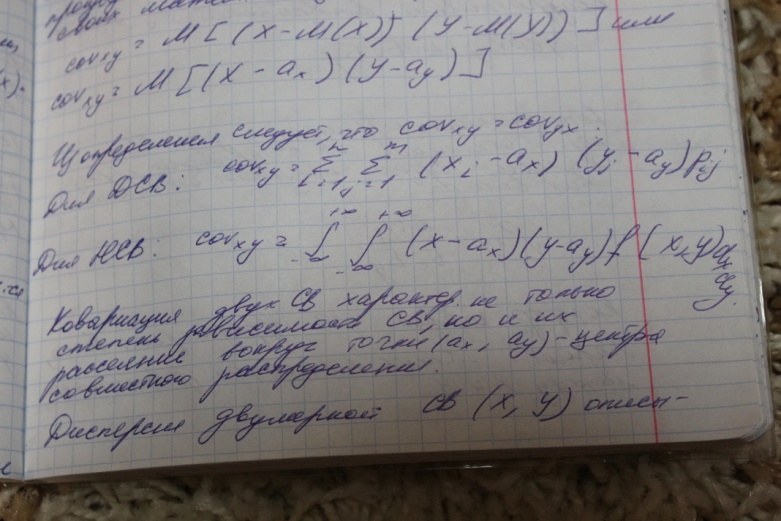 своих
cov_xy = M[(X-M(X))(Y-M(Y))] или
cov_xy = M[(X-a_x)(Y-a_y)]
Из определения следует, что cov_xy = cov_yx.
Для ДСВ: cov_xy = Σ_{i=1}^{n} Σ_{j=1}^{m} (x_i - a_x)(y_j - a_y) p_ij
Для НСВ: cov_xy = ∫_{-∞}^{+∞} ∫_{-∞}^{+∞} (x-a_x)(y-a_y) f(x,y) dx
dy.
Ковариация двух СВ характер. не только
степень зависимости СВ, но и их
рассеяние вокруг точки (a_x, a_y) - центра
совместного распределения.
Дисперсия двумерной СВ (X, Y) описы-